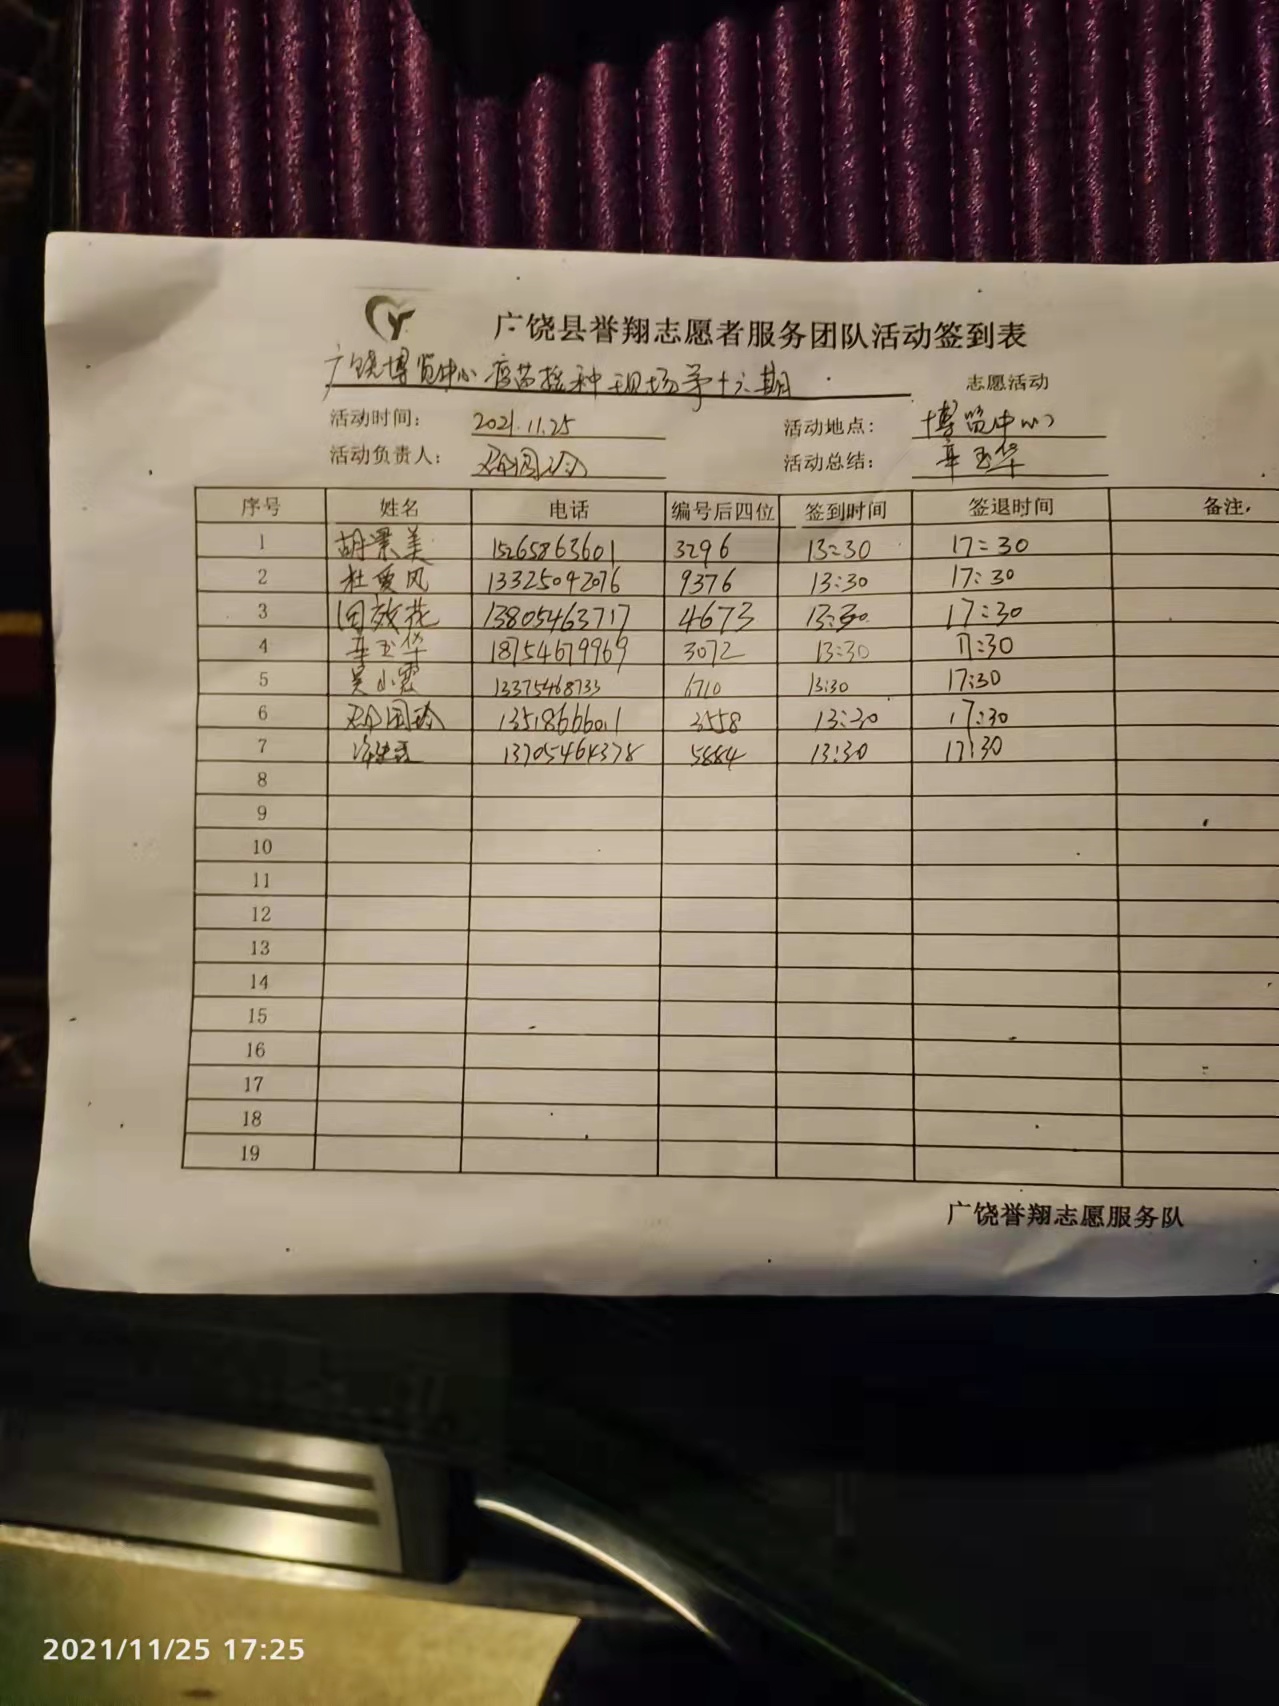 广饶县誉翔志愿者服务团队活动签到表
广饶博览中心疫苗接种现场第十六期 志愿活动
活动时间: 2021.11.25 活动地点: 博览中心
活动负责人: 活动总结: 辛玉华
序号 姓名 电话 编号后四位 签到时间 签退时间 备注
1 胡景美 15265863601 3296 13:30 17:30
2 杜爱风 13325042076 9376 13:30 17:30
3 田效花 13805463717 4673 13:30 17:30
4 辛玉华 18754679969 3072 13:30 17:30
5 吴小霞 13375468733 6710 13:30 17:30
6 13518666011 3558 13:30 17:30
7 13705464378 5884 13:30 17:30
8
9
10
11
12
13
14
15
16
17
18
19
广饶誉翔志愿服务队
2021/11/25 17:25